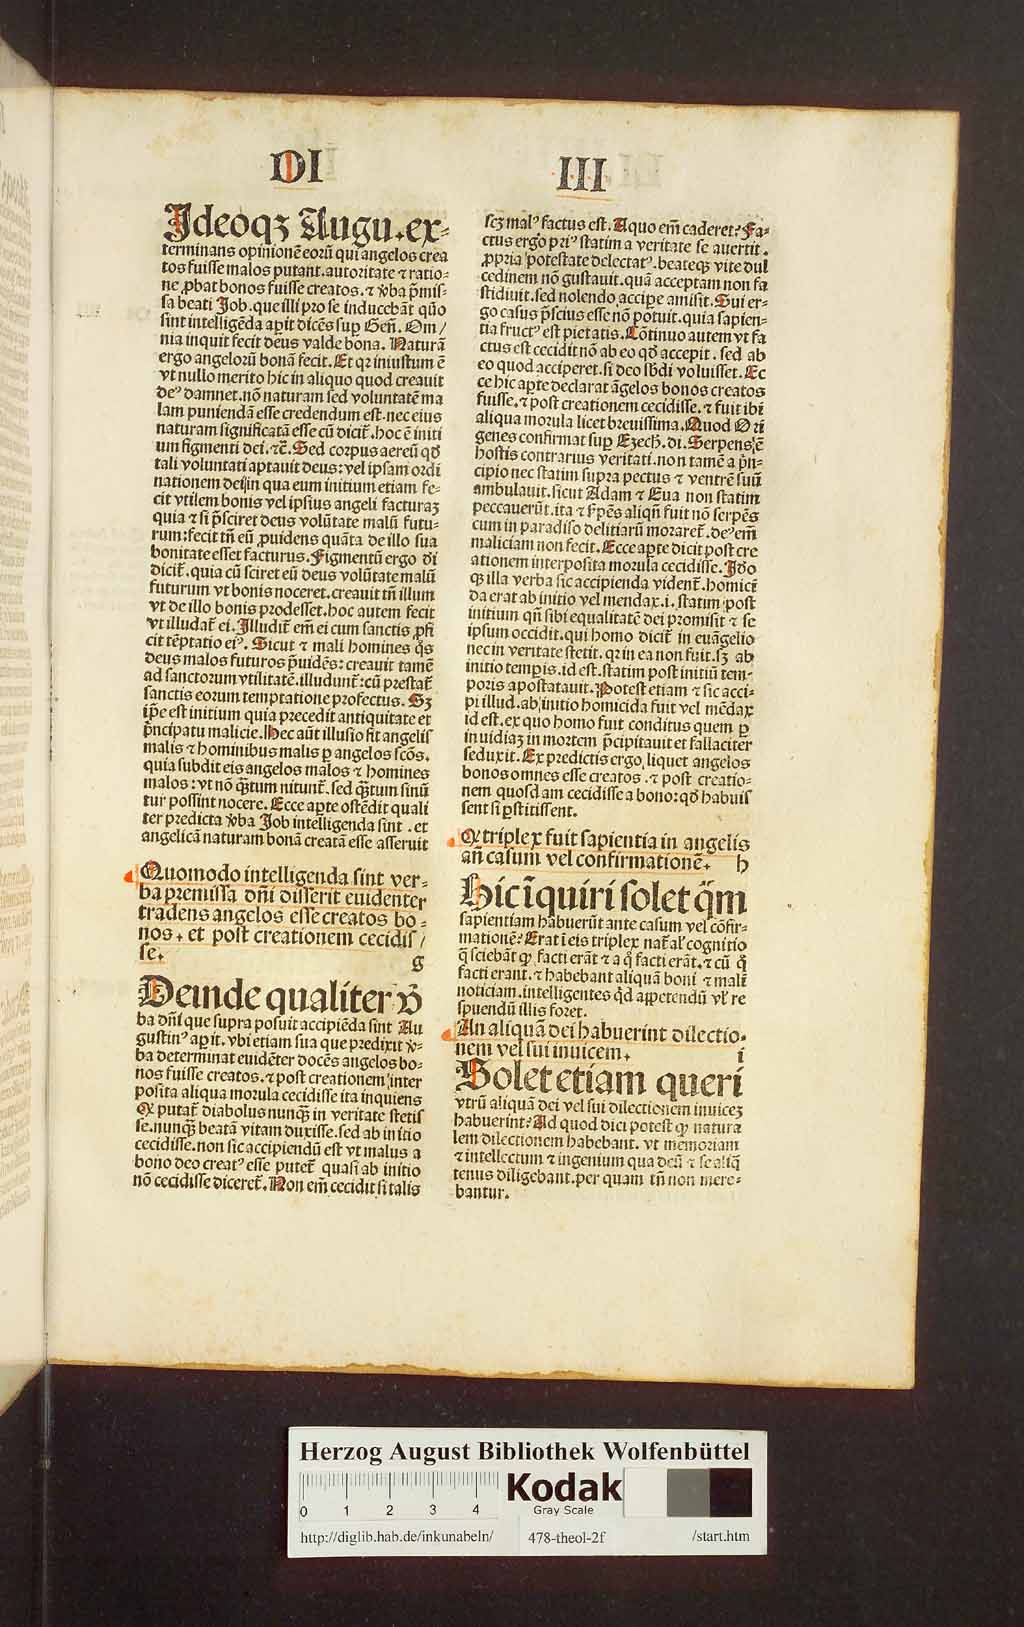 DI III
Ideoqꝫ Augu. ex⸗
terminans opinionē eorū qui angelos crea
tos fuisse malos putant. autoritate ⁊ ratio⸗
ne ꝓbat bonos fuisse creatos. ⁊ v̄ba p̄mis⸗
sa beati Job. que illi pro se inducebāt quō
sint intelligēda aꝑit dicēs suꝑ Geñ. Om/
nia inquit fecit deus valde bona. Naturā
ergo angelorū bonā fecit. Et qꝛ iniustum ē
vt nullo merito hic in aliquo quod creauit
deꝰ damnet. nō naturam sed voluntatē ma
lam puniendā esse credendum est. nec eius
naturam significatā esse cū dicit᷑. hoc ē initi
um figmenti dei. ⁊c̄. Sed corpus aereū qđ
tali voluntati aptauit deus: vel ipsam ordi
nationem dei in qua eum initium etiam fe⸗
cit vtilem bonis vel ipsius angeli facturaꝫ
quia ⁊ si p̄sciret deus volūtate malū futu⸗
rum: fecit tñ eū ꝓuidens quāta de illo sua
bonitate esset facturus. Figmentū ergo di
dicit᷑. quia cū sciret eū deus volūtate malū
futurum vt bonis noceret. creauit tñ illum
vt de illo bonis prodesset. hoc autem fecit
vt illudat᷑ ei. Illudit᷑ em̄ ei cum sanctis ꝓfi
cit tēptatio eiꝰ. Sicut ⁊ mali homines qͦs
deus malos futuros p̄uidēs: creauit tamē
ad sanctorum vtilitatē. illudunt᷑: cū prestat᷑
sanctis eorum temptatione profectus. Sꝫ
ip̄e est initium quia precedit antiquitate et
p̄ncipatu malicie. Hec aūt illusio fit angelis
malis ⁊ hominibus malis ꝑ angelos scōs.
quia subdit eis angelos malos ⁊ homines
malos: vt nō qͣꝫtum nitunt᷑. sed qͣꝫtum sinū
tur possint nocere. Ecce aꝑte ostēdit quali
ter predicta v̄ba Job intelligenda sint. et
angelicā naturam bonā creatā esse asseruit
Quomodo intelligenda sint ver⸗
ba premissa dn̄i disserit euidenter
tradens angelos esse creatos bo⸗
nos. et post creationem cecidis/
se. g
Deinde qualiter v̄
ba dn̄i que supra posuit accipiēda sint Au
gustinꝰ aꝑit. vbi etiam sua que predixit v̄⸗
ba determinat euidēter docēs angelos bo⸗
nos fuisse creatos. ⁊ post creationem inter
posita aliqua morula cecidisse ita inquiens
Qꝙ putat᷑ diabolus nunqͣꝫ in veritate stetis
se. nunqͣꝫ beatā vitam duxisse. sed ab initio
cecidisse. non sic accipiendū est vt malus a
bono deo creatꝰ esse putet᷑ quasi ab initio
nō cecidisse diceret᷑. Non em̄ cecidit si talis
scꝫ malꝰ factus est. A quo em̄ caderet? Fa⸗
ctus ergo priꝰ statim a veritate se auertit.
ꝓpria potestate delectatꝰ. beateqꝫ vite dul
cedinem nō gustauit. quā acceptam non fa
stidiuit. sed nolendo accipe amisit. Sui er⸗
go casus p̄scius esse nō potuit. quia sapien⸗
tia fructꝰ est pietatis. Cōtinuo autem vt fa
ctus est cecidit nō ab eo qđ accepit. sed ab
eo quod acciperet. si deo sb̄di voluisset. Ec
ce hic aꝑte declarat āgelos bonos creatos
fuisse. ⁊ post creationem cecidisse. ⁊ fuit ibi
aliqua morula licet breuissima. Quod Ori
genes confirmat suꝑ Ezech. di. Serpens ē
hostis contrarius veritati. non tamē a p̄n⸗
cipio nec statim supra pectus ⁊ ventrē suū
ambulauit. sicut Adam ⁊ Eua non statim
peccauerūt. ita ⁊ s̄pēs aliqn̄ fuit nō serpēs
cum in paradiso delitiarū moraret᷑. deꝰ em̄
maliciam non fecit. Ecce aꝑte dicit post cre
ationem interposita morula cecidisse. Ido
qꝫ illa verba sic accipienda vident᷑. homici
da erat ab initio vel mendax. i. statim post
initium qn̄ sibi equalitatē dei promisit ⁊ se
ipsum occidit. qui homo dicit᷑ in euāgelio
nec in veritate stetit. qꝛ in ea non fuit. sꝫ ab
initio temꝑis. id est. statim post initiū tem⸗
poris apostatauit. Potest etiam ⁊ sic acci⸗
pi illud. ab initio homicida fuit vel mēdax
id est. ex quo homo fuit conditus quem ꝑ
inuidiaꝫ in mortem p̄cipitauit et fallaciter
seduxit. Ex predictis ergo liquet angelos
bonos omnes esse creatos. ⁊ post creatio⸗
nem quosdam cecidisse a bono: qđ habuis
sent si ꝑstitissent.
Qꝙ triplex fuit sapientia in angelis
an̄ casum vel confirmationē. h
Hic īquiri solet qͣm
sapientiam habuerūt ante casum vel cōfir⸗
mationē? Erat ī eis triplex nat᷑al' cognitio
q̄ sciebāt ꝙ facti erāt ⁊ a q̄ facti erāt. ⁊ cū q̄
facti erant. ⁊ habebant aliquā boni ⁊ mali
noticiam. intelligentes qd̄ appetendū vl' re
spuendū illis foret.
An aliquā dei habuerint dilectio⸗
nem vel sui inuicem. i
Solet etiam queri
vtrū aliquā dei vel sui dilectionem inuiceꝫ
habuerint? Ad quod dici potest ꝙ natura
lem dilectionem habebant. vt memoriam
⁊ intellectum ⁊ ingenium qua deū ⁊ se aliq̄
tenus diligebant. per quam tñ non mere⸗
bantur.
Herzog August Bibliothek Wolfenbüttel
0 1 2 3 4
Kodak
Gray Scale
http://diglib.hab.de/inkunabeln/ 478-theol-2f /start.htm